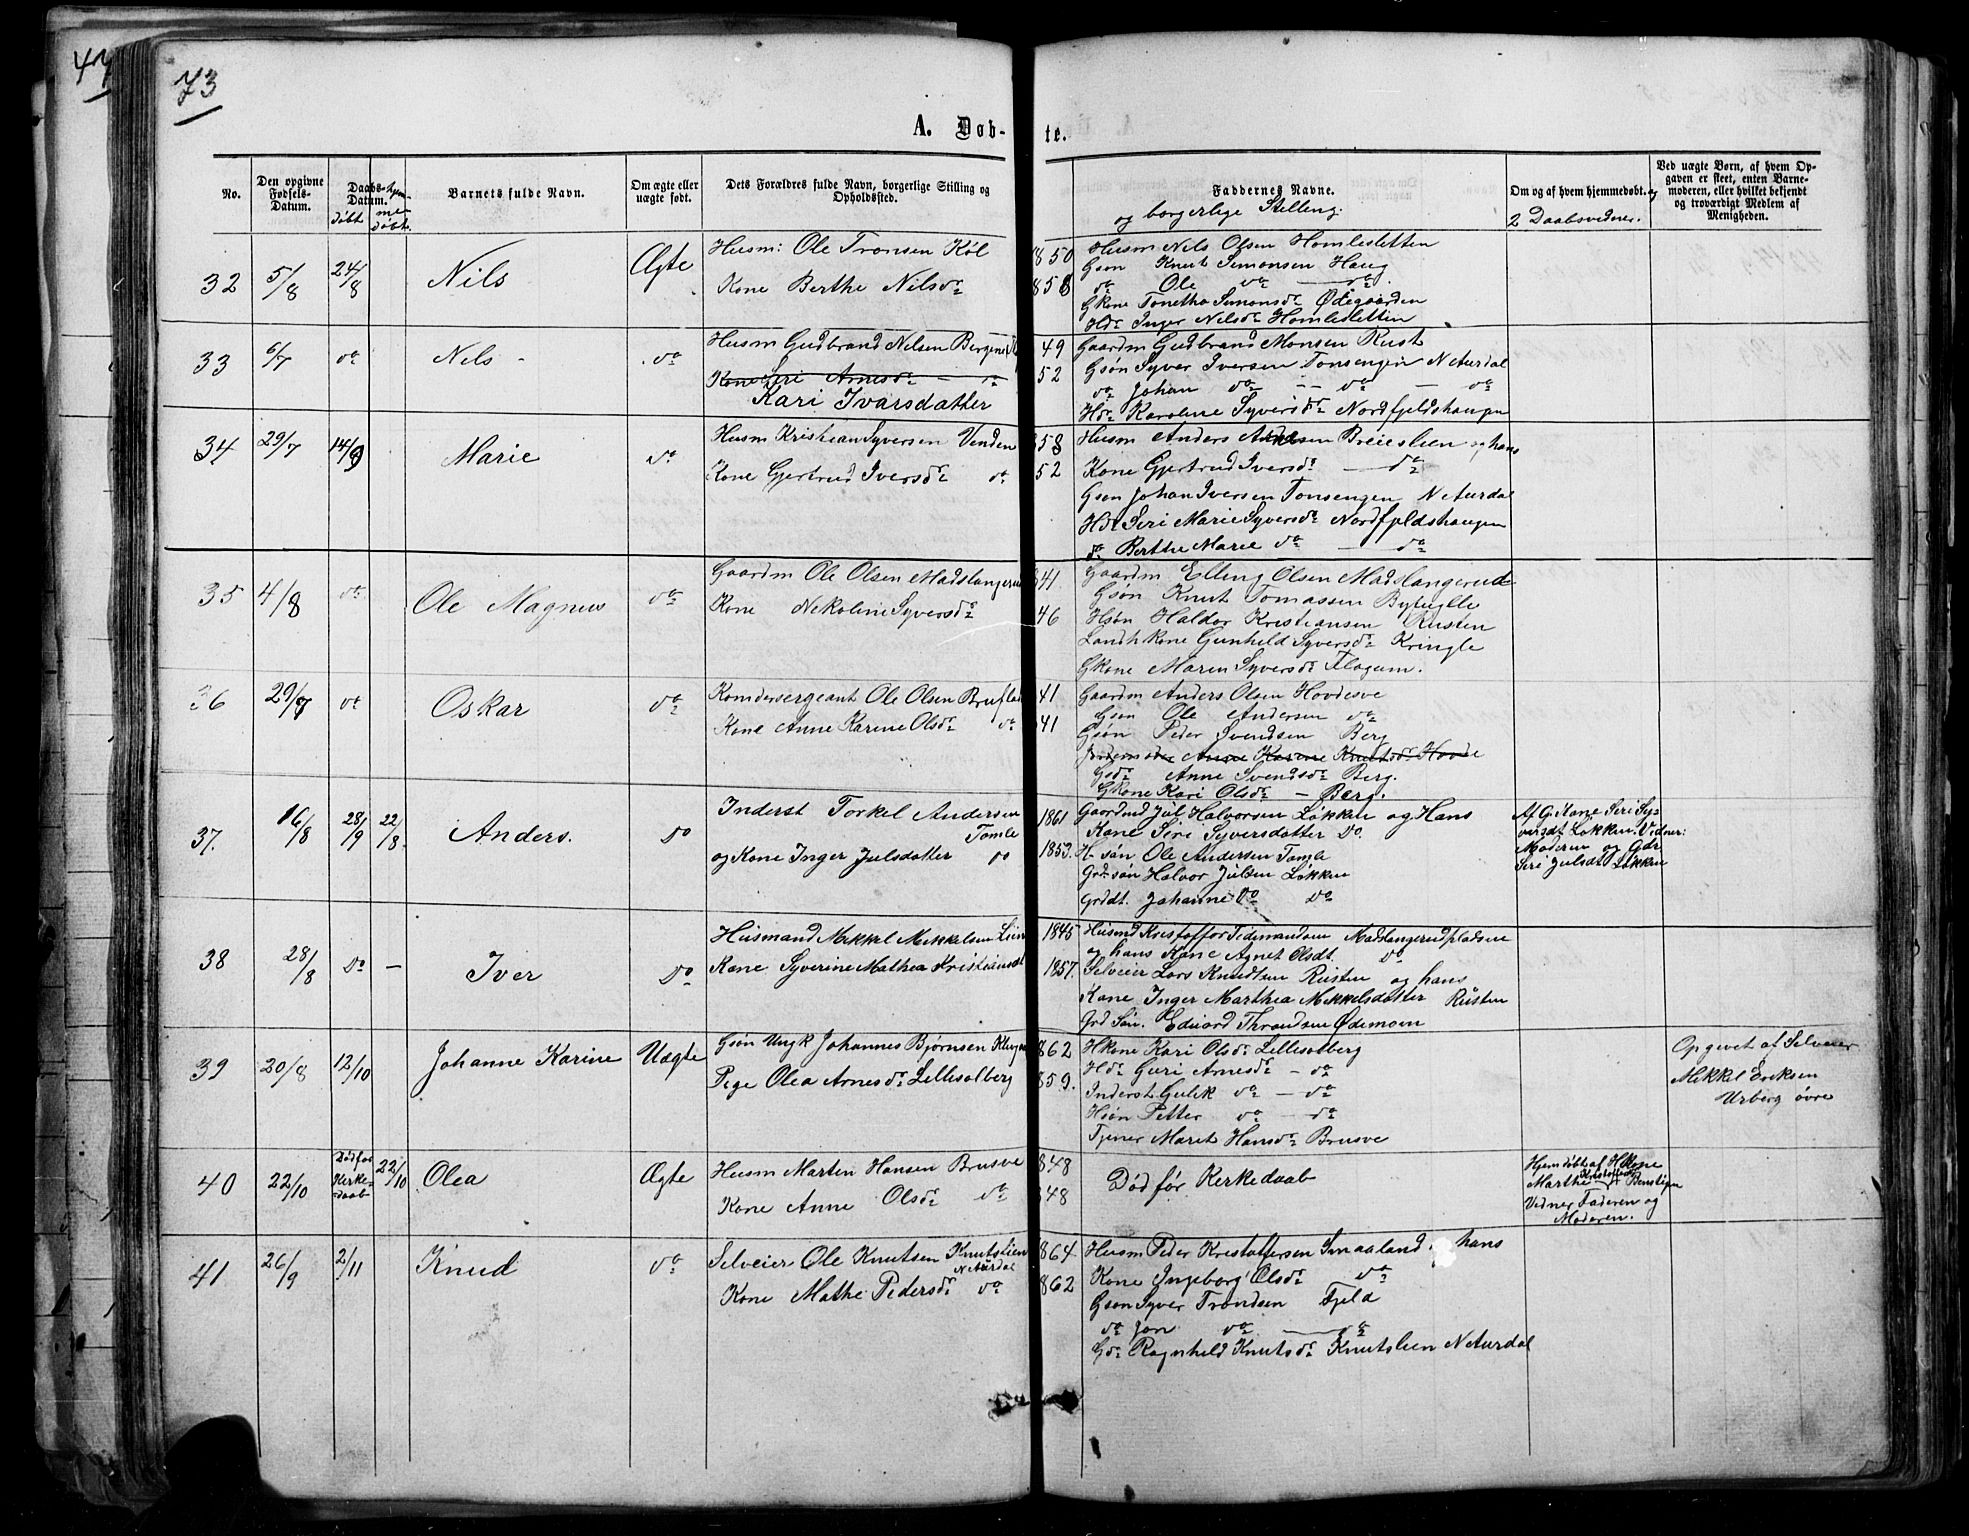 73
A. Døb-
te.
No.
Den opgivne Fødsels-Datum.
Daabs-Datum.
døbt
hjem-
me
døbt.
Barnets fulde Navn.
Om ægte eller uægte født.
Dets Forældres fulde Navn, borgerlige Stilling og Opholdssted.
Faddernes Navne.
og borgerlige Stilling.
Om og af hvem hjemmedøbt. og
2 Daabsvidner.
Ved uægte Børn, af hvem Op-
gaven er skeet, enten Barne-
moderen, eller hvilket bekjendt
og troværdigt Medlem af
Menigheden.
32 5/8 24/8 Nils Ægte
Husm: Ole Tronsen Køl
Kone Berthe Nilsdr
1850
1858
Husm Nils Olsen Homlesletten
Gsøn Knut Simonsen Haug
do Ole do — do
Gkone Tonetha Simonsdr Ødegaarden
Hdr Inger Nilsdr Homlesletten
33 6/7 do Nels do
Husm Gudbrand Nilsen Bergene
Kone Seri Arnesdr — do
Kari Ivarsdatter
49
52
Gaardm Gudbrand Monsen Rust
Gsøn Syver Iversen Tonsengen N Aurdal
do Johan do — do — do
Hdr Karoline Syversdr Nordfjeldshaugen
34 29/7 14/9 Marie do
Husm Kristian Syversen Venden
Kone Gjertrud Iversdr do
858
52
Husm Anders Andersen Breieslien og hans
Kone Gjertrud Iversdr — do
Gsøn Johan Iversen Tonsengen N Aurdal
Hdr Seri Marie Syversdr Nordfjeldshaugen
do Berthe Marie do — do
35 4/8 do Ole Magnus do
Gaardm Ole Olsen Madslangerud
Kone Nekoline Syversdr
841
46
Gaardm Elling Olsen Madslangerud
Gsøn Knut Tomassen Byfuglle
Hsøn Haldor Kristiansen Rusten
Landhkone Gunhild Syversdr Kringle
Gkone Maren Syversdr Flagum.
36 29/7 do Oskar do
Komdersergeant Ole Olsen Bruflat
Kone Anne Karine Olsdr do
41
41
Gaardm Anders Olsen Hovdesve
Gsøn Ole Andersen do
Gsøn Peder Svendsen Berg
Jordemoder Anne Karine Knutsdr Hovde
Gdr Anne Svendsdr Berg.
Gkone Kari Olsdr — Berg.
37. 16/8 28/9 22/8 Anders. do
Inderst Torkel Andersen
Tomle
og Kone Inger Julsdatter do
1861
1853.
Gaardmd Jul Halvorsen Løkken og Hans
Kone Siri Syversdatter do
H-søn Ole Andersen Tomle
Grdsøn Halvor Julsen Løkken
Grddt. Johanne do do
Af G. Kone Seri Sy-
versdt Løkken. Vidner:
Moderen og Gdr
Siri Julsdt Løkken
38 28/8 do — Iver do
Husmand Mikkel Mikkelsen Lien
Kone Syverine Mathea Kristiansdt
1845
1857.
Husmd Kristoffer Tidemandsen Madslangerudpladsen
og hans Kone Agnet Olsdt. do
Selveier Lars Knudtsen Rusten og hans
Kone Inger Marthea Mikkelsdatter Rusten
Grd Søn. Edvard Throndsen Ødemoen
39 20/8 12/10 Johanne Karine Uægte
Gsøn Ungk Johannes Bjørnsen
Pige Olea Arnesdr Lillesolberg
862
859.
Hkone Kari Olsdr Lillesolberg
Hdr Guri Arnesdr — do
Inderst Gulik do — do
Hsøn Petter do — do
Tjener Marit Hansdr Brusve
Opgivet af Selveier
Mikkel Eriksen
Urberg øvre
40 22/10 Død før Kirke-
daab 22/10 Olea Ægte
Husm Martin Hansen Brusve
Kone Anne Olsdr do
848
48
Død før Kirkedaab
Hjemdøbt af Hkone
Marthe
Vidner Faderen og
Moderen.
41 26/9 2/11 Knud do
Selveier Ole Knutsen Knutslien
N Aurdal
Kone Mathe Pedersdr do
864
862
Husm Peder Kristoffersen Smaaland hans
Kone Ingeborg Olsdr do
Gsøn Syver Trondsen Fjeld
do Jon do — do
Gdr Ragnhild Knutsdr Knutslien N Aurdal